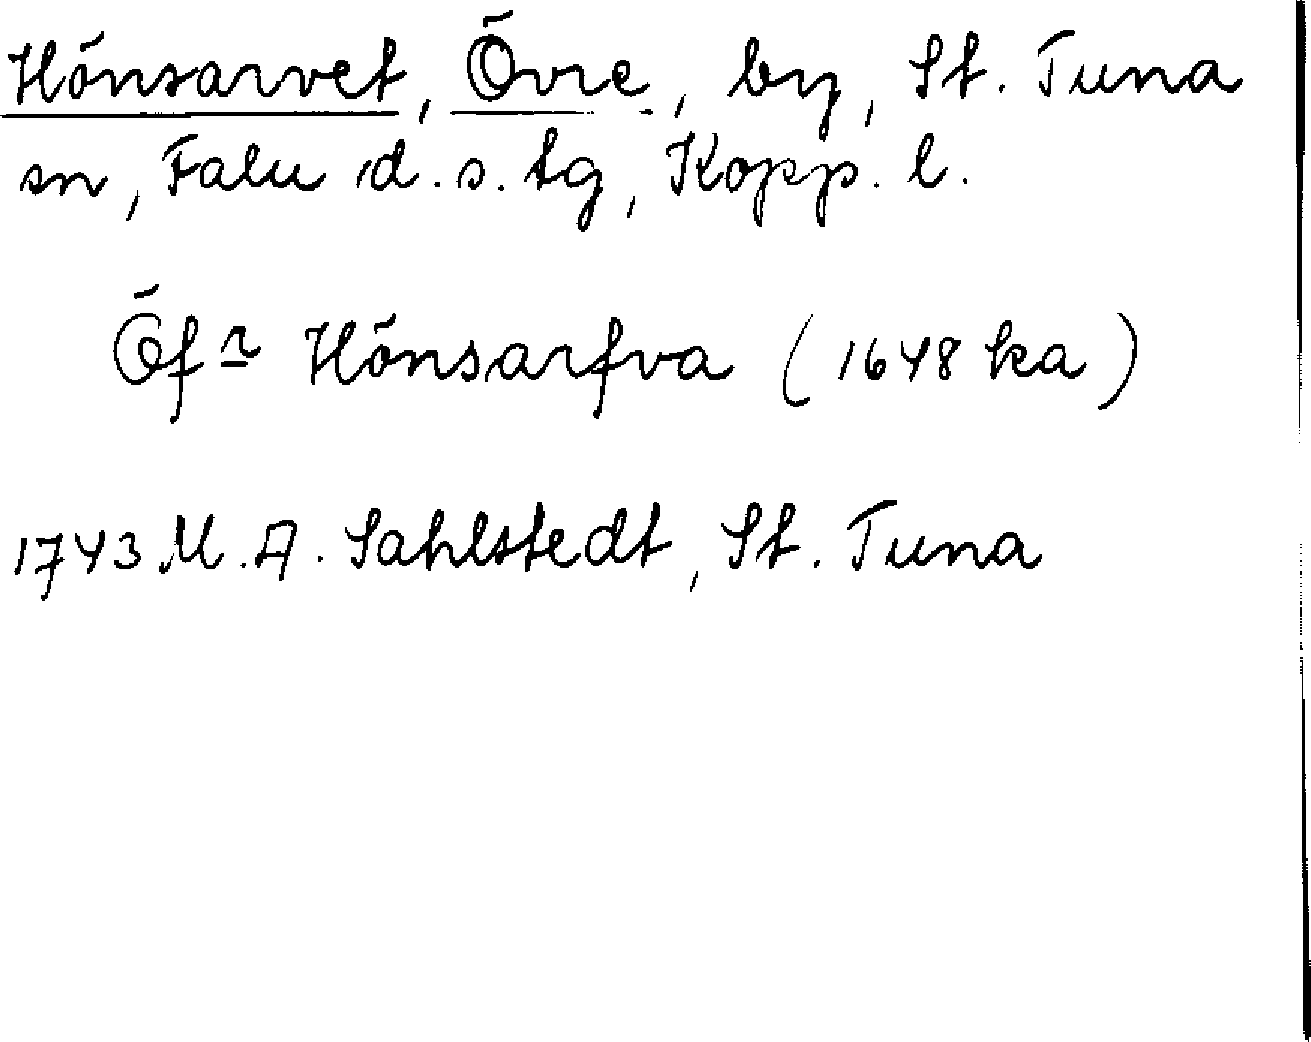 Hönsarvet, Övre, by, St. Tuna
sn, Falu d.s. tg, Kopp. l.
Öfr Hönsarfva (1648 ka)
1743 M.A. Sahlstedt, St. Tuna